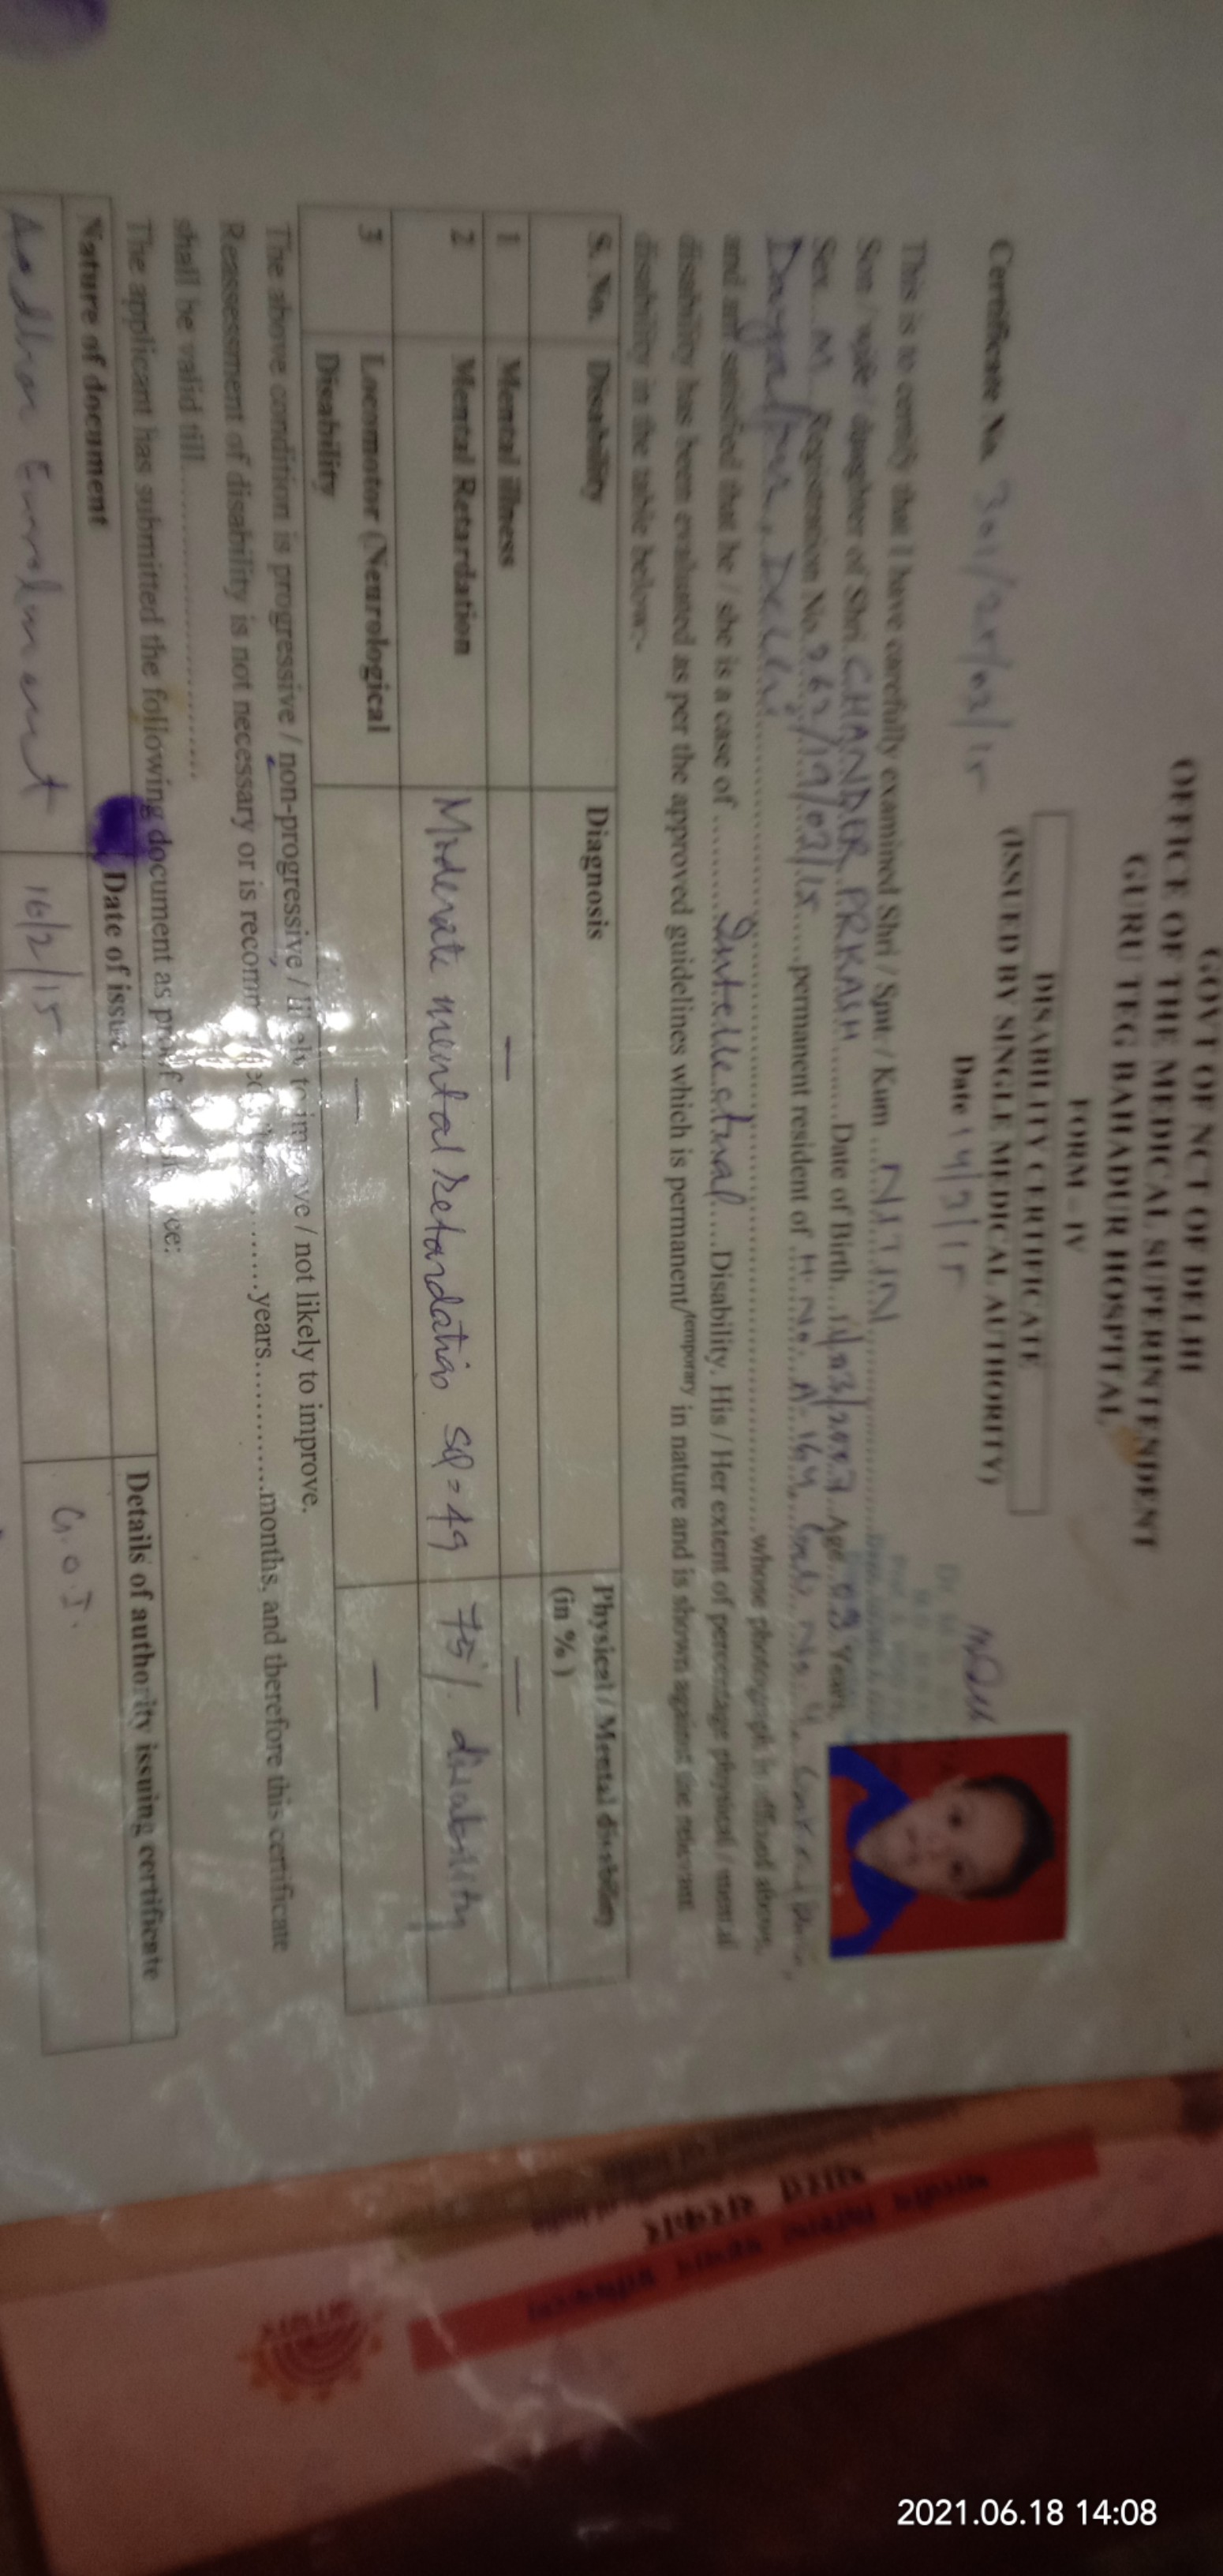 GOVT OF NCT OF DELHI
OFFICE OF THE MEDICAL SUPERINTENDENT
GURU TEG BAHADUR HOSPITAL
FORM - IV
DISABILITY CERTIFICATE
(ISSUED BY SINGLE MEDICAL AUTHORITY)
Certificate No. Date
This is to certify that I have carefully examined Shri / Smt / Kum ....NITIN
Son / wife / daughter of Shri CHANDER PRKASH ........Date of Birth... Age 08 Years,
Sex M Registration No. 262/19/02/15......permanent resident of ..H. No. A-164,
Dayalpur, Delhi .........whose photograph is affixed above,
and am satisfied that he / she is a case of .........Intellectual....Disability. His / Her extent of percentage physical / mental
disability has been evaluated as per the approved guidelines which is permanent/temporary in nature and is shown against the relevant
disability in the table below:-
S. No. Disability Diagnosis Physical / Mental disability
(in %)
1 Mental illness — —
2 Mental Retardation Moderate mental retardation SQ = 49 75% disability
3 Locomotor (Neurological — —
Disability
The above condition is progressive / non-progressive / likely to improve / not likely to improve.
Reassessment of disability is not necessary or is recommended after .......years...........months, and therefore this certificate
shall be valid till..........................
The applicant has submitted the following document as proof of
Nature of document Date of issue Details of authority issuing certificate
Aadhar Enrolment 16/2/15 G.O.I.
भारत सरकार
2021.06.18 14:08